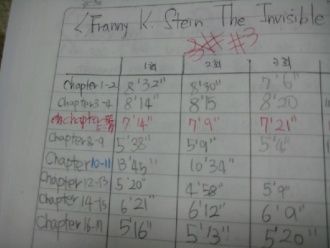 <Franny K. Stein The Invisible
3# #3
1회 2회 3회
chapter1-2 8'32" 8'30" 7'6"
Chapter3-4 8'14" 8'15 8'20
chapter 7'4" 7'9" 7'21"
Chapter8-9 5'38" 5'9" 5'4"
Chapter10-11 8'45" 10'34"
Chapter12-13 5'20" 4'58" 5'9"
Chapter14-15 6'21" 6'12" 6'9"
Chapter16-17 5'16" 5'13" 5'20"